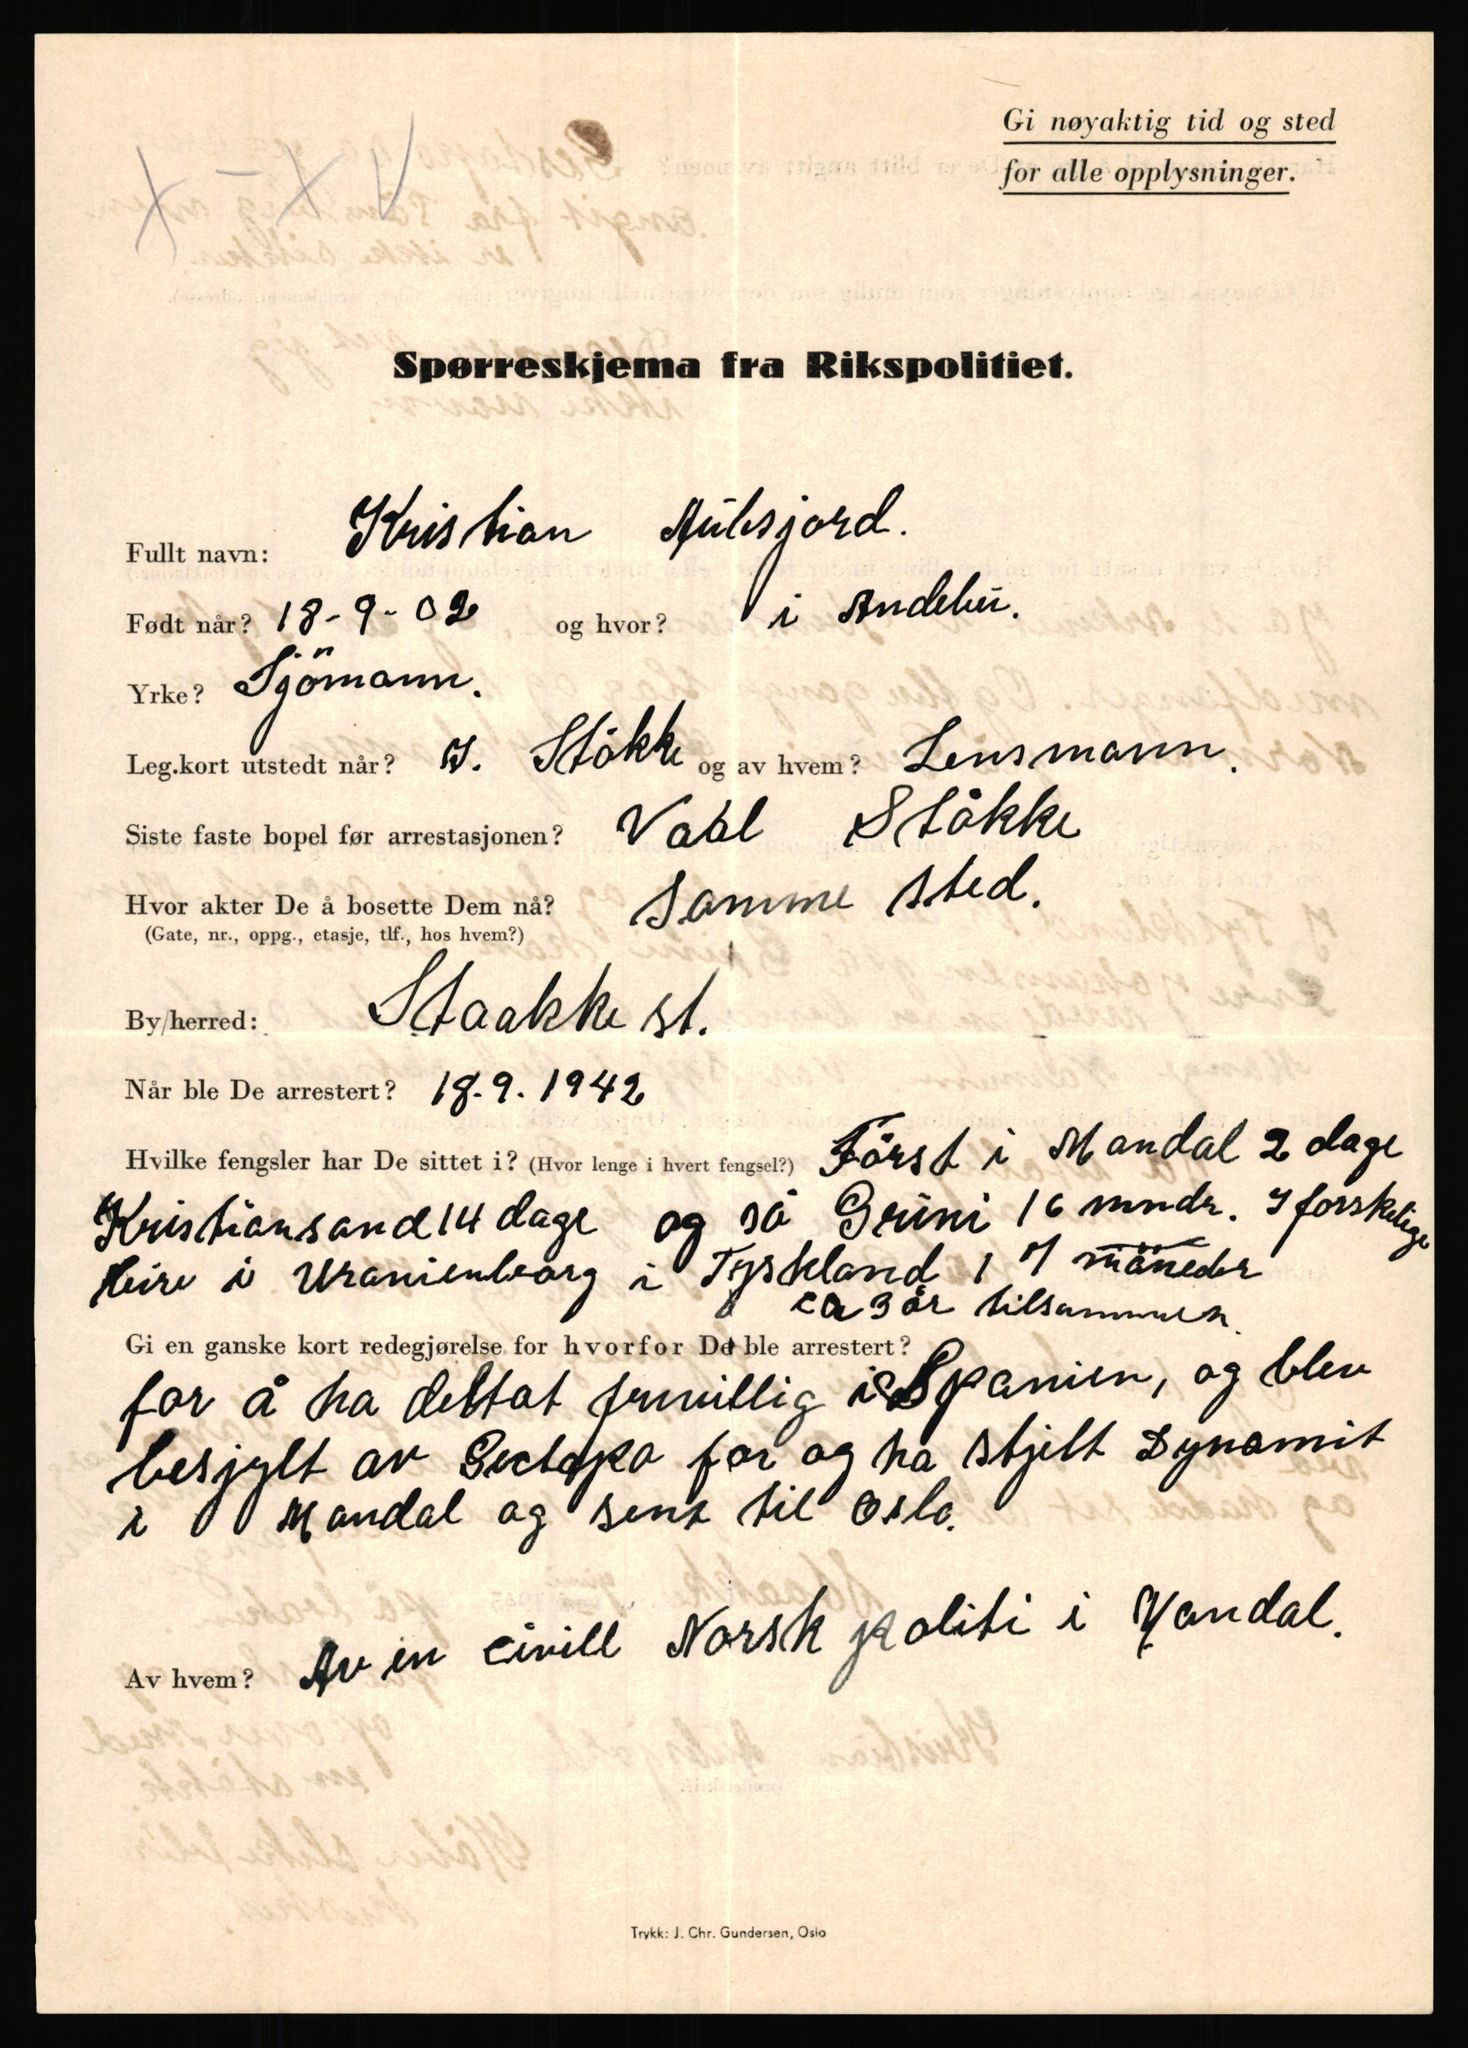 Gi nøyaktig tid og sted
for alle opplysninger.
Spørreskjema fra Rikspolitiet.
Fullt navn: Kristian Aulesjord.
Født når? 18-9-02 og hvor? i Andebu.
Yrke? Sjömann.
Leg.kort utstedt når? Stökke og av hvem? Lensmann.
Siste faste bopel før arrestasjonen? Vaal Ståkke
Hvor akter De å bosette Dem nå? Samme sted.
(Gate, nr., oppg., etasje, tlf., hos hvem?)
By/herred: Staakke st.
Når ble De arrestert? 18.9.1942
Hvilke fengsler har De sittet i? (Hvor lenge i hvert fengsel?) Först i Mandal 2 dage
Kristiansand 14 dage og så Grini 16 mndr. I forskelige
leire i Uranienborg i Tyskland 17 måneder
ca 3 år tilsammen.
Gi en ganske kort redegjørelse for hvorfor De ble arrestert?
for å ha deltat frivillig i Spanien, og blev
besjylt av Gestapo for og ha stjelt Dynamit
i Mandal og sent til Oslo.
Av hvem? Av en civill Norsk politi i Mandal.
Trykk: J. Chr. Gundersen, Oslo